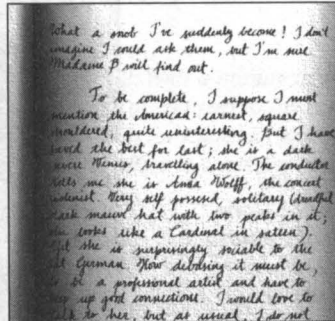 What a snob I've suddenly become! I don't
imagine I could ask them, but I'm sure
Madame B will find out.
To be complete, I suppose I must
mention the American: earnest, square
shouldered, quite uninteresting. But I have
saved the best for last; she is a dark
severe Venus, travelling alone. The conductor
tells me she is Anna Wolff, the concert
violinist. Very self possessd, solitary (dreadful
dark mauve hat with two peaks in it;
she looks like a Cardinal in sateen).
Yet she is surprisingly sociable to the
fat German. How debasing it must be,
to be a professional artist and have to
keep up good connections. I would love to
talk to her, but as usual, I do not